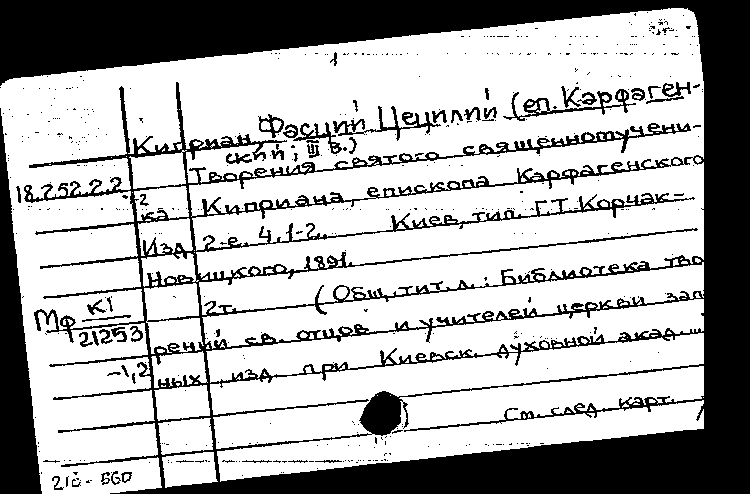 Киприан, Фасций Цецилий (еп. Карфаген-
ский; III в.)
18.252.2.2
Творения святого священномучени-
ка Киприана, епископа Карфагенского
Изд. 2-е. Ч. 1-2. Киев, тип. Г.Т. Корчак-
Новицкого, 1891.
2 т. (Общ. тит. л.: Библиотека тво
Мф К1
21253
рений св. отцов и учителей церкви зап
-1,2
ных, изд. при Киевск. духовной акад...
См. след. карт.
210-560